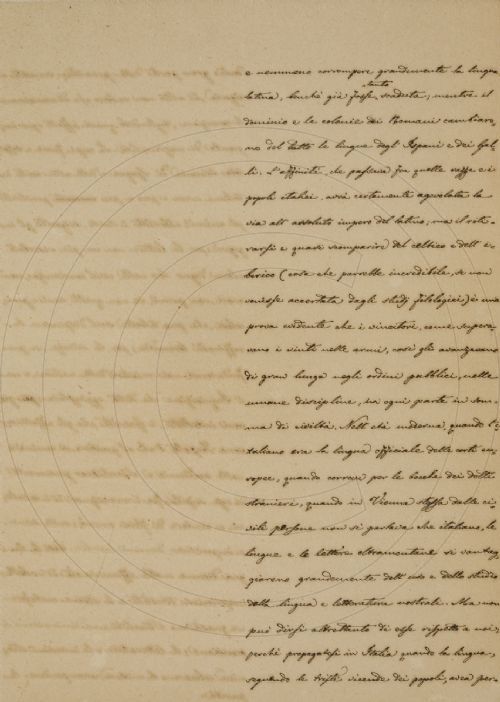 e nemmeno corrompere grandemente la lingua
latina, benchè già fosse tanto scaduta; mentre il
dominio e le colonie dei Romani cambiaro-
no del tutto le lingue degl' Ispani e dei Gal-
li. L'affinità, che passava fra quelle razze e i
popoli italici, avrà certamente agevolata la
via all' assoluto impero del latino; ma il riti-
rarsi e quasi scomparire del celtico e dell' i-
berico (cosa che parrebbe incredibile, se non
venisse accertata dagli studj filologici) è una
prova evidente che i vincitori, come supera-
vano i vinti nelle armi, così gli avanzavano
di gran lunga negli ordini pubblici, nelle
umane discipline, in ogni parte in som-
ma di civiltà. Nell' età moderna, quando l'i-
taliano era la lingua officiale delle corti eu-
ropee, quando correva per le bocche dei dotti
stranieri, quando in Vienna stessa dalle ci-
vili persone non si parlava che italiano, le
lingue e le lettere oltramontane si vantag-
giarono grandemente dell' uso e dello studio
della lingua e letteratura nostrale. Ma non
può dirsi altrettanto di esse rispetto a noi,
perchè propagatesi in Italia quando la lingua,
seguendo le tristi vicende dei popoli, avea per-